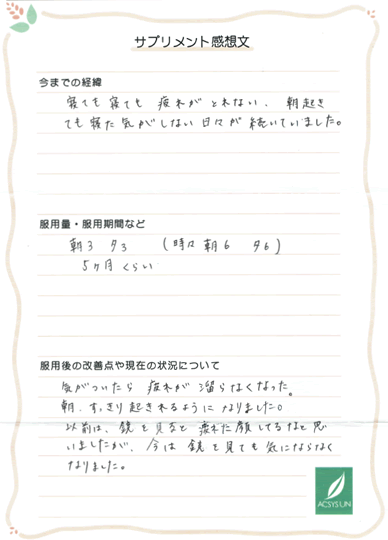 サプリメント感想文
今までの経緯
寝ても寝ても 疲れがとれない、朝起き
ても寝た気がしない日々が続いていました。
服用量・服用期間など
朝3 夕3 (時々 朝6 夕6)
5ヶ月くらい
服用後の改善点や現在の状況について
気がついたら 疲れが溜らなくなった。
朝、すっきり起きれるようになりました。
以前は、鏡を見ると 疲れた顔してるなと思
いましたが、今は 鏡を見ても気にならなく
なりました。
ACSYSUN